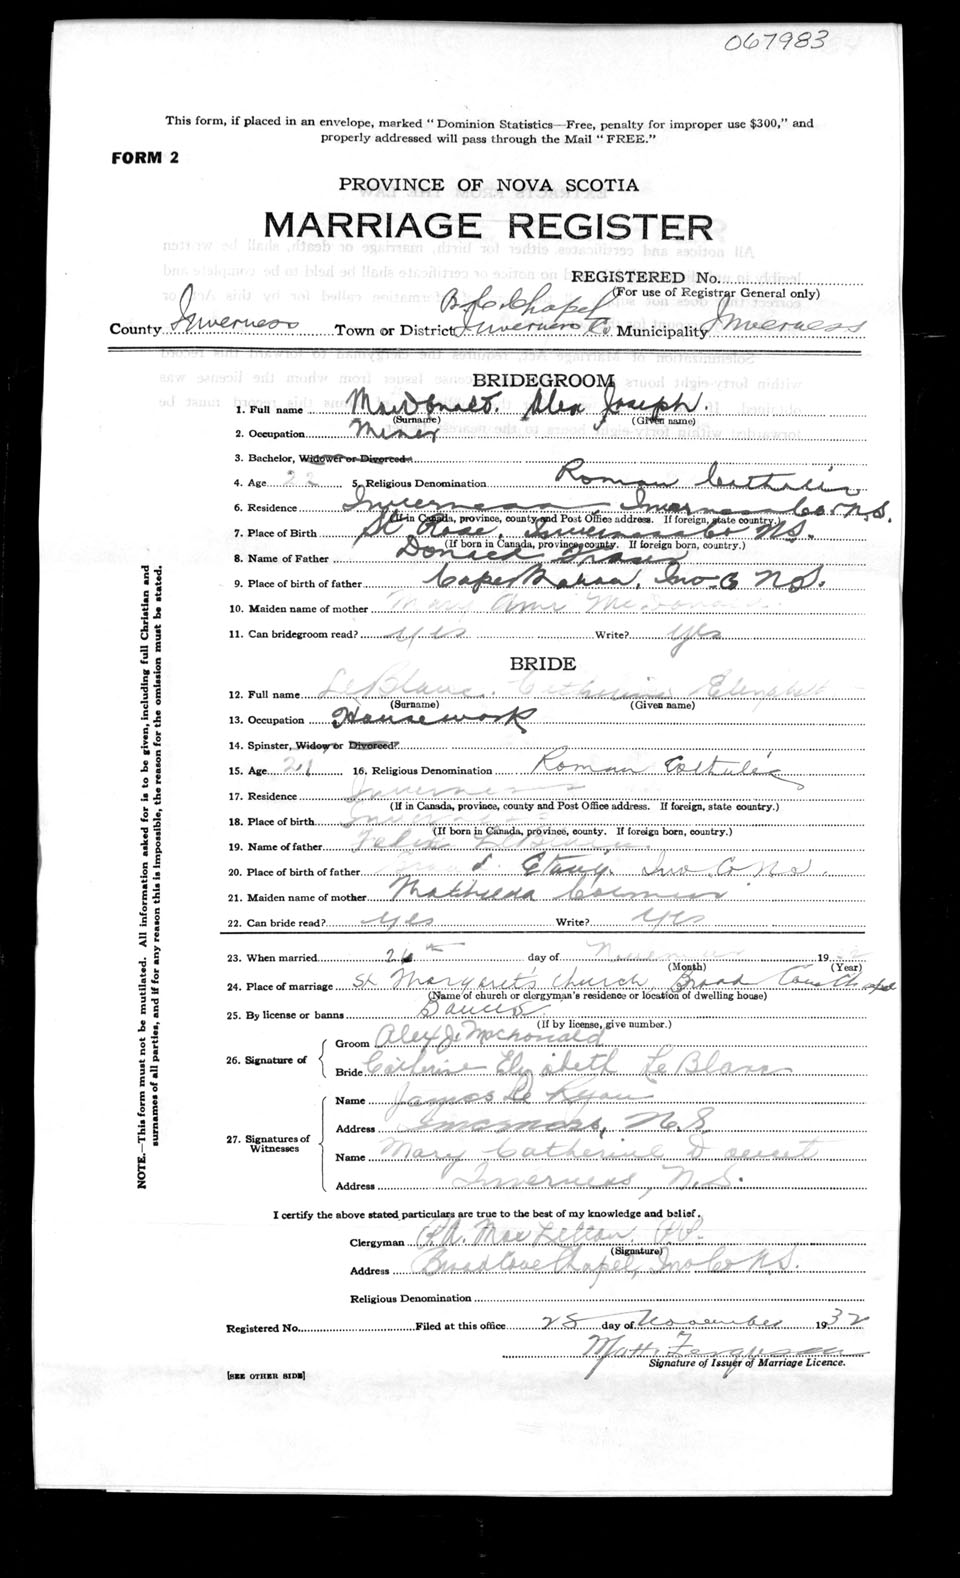 067983
This form, if placed in an envelope, marked "Dominion Statistics—Free, penalty for improper use $300," and
properly addressed will pass through the Mail "FREE."
FORM 2
PROVINCE OF NOVA SCOTIA
MARRIAGE REGISTER
REGISTERED No.
(For use of Registrar General only)
B. C. Chapel
County Inverness Town or District Inverness Co Municipality Inverness
BRIDEGROOM
1. Full name MacDonald. Alex Joseph.
(Surname) (Given name)
2. Occupation Miner
3. Bachelor, Widower or Divorced
4. Age 22 5. Religious Denomination Roman Catholic
6. Residence Inverness Inverness Co N.S.
(If in Canada, province, county and Post Office address. If foreign, state country.)
7. Place of Birth St Rose, Inverness Co N.S.
(If born in Canada, province, county. If foreign born, country.)
8. Name of Father Donald
9. Place of birth of father Cape Mabou, Inv. Co N.S.
10. Maiden name of mother Mary Ann McDonald
11. Can bridegroom read? yes Write? yes
BRIDE
12. Full name LeBlanc. Catherine Elizabeth
(Surname) (Given name)
13. Occupation Housework
14. Spinster, Widow or Divorced?
15. Age 21 16. Religious Denomination Roman Catholic
17. Residence Inverness
(If in Canada, province, county and Post Office address. If foreign, state country.)
18. Place of birth Inverness
(If born in Canada, province, county. If foreign born, country.)
19. Name of father Felix LeBlanc
20. Place of birth of father Etang. Inv. Co N.S.
21. Maiden name of mother Mathilda
22. Can bride read? yes Write? yes
23. When married 26th day of November 19
(Month) (Year)
24. Place of marriage St Margaret's Church Broad Cove Chapel
(Name of church or clergyman's residence or location of dwelling house)
25. By license or banns Banns
(If by license, give number.)
26. Signature of
Groom Alex J. Macdonald
Bride Catherine Elizabeth LeBlanc
27. Signatures of Witnesses
Name James Ryan
Address Inverness, N.S.
Name Mary Catherine
Address Inverness, N.S.
I certify the above stated particulars are true to the best of my knowledge and belief.
Clergyman Mac P.P.
(Signature)
Address Broad Cove Chapel, Inv. Co N.S.
Religious Denomination
Registered No. Filed at this office 28 day of November 1932
Matt. Ferguson
Signature of Issuer of Marriage Licence.
[SEE OTHER SIDE]
NOTE.—This form must not be mutilated. All information asked for is to be given, including full Christian and
surnames of all parties, and if for any reason this is impossible, the reason for the omission must be stated.